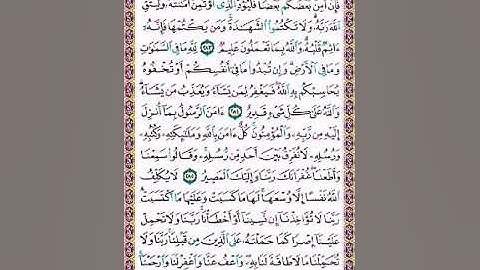 فَإِنْ أَمِنَ بَعْضُكُم بَعْضًا فَلْيُؤَدِّ الَّذِى اؤْتُمِنَ أَمَٰنَتَهُۥ وَلْيَتَّقِ
اللَّهَ رَبَّهُۥ وَلَا تَكْتُمُوا۟ الشَّهَٰدَةَ وَمَن يَكْتُمْهَا فَإِنَّهُۥٓ
ءَاثِمٌ قَلْبُهُۥ وَاللَّهُ بِمَا تَعْمَلُونَ عَلِيمٌ ٢٨٣ لِّلَّهِ مَا فِى السَّمَٰوَٰتِ
وَمَا فِى الْأَرْضِ وَإِن تُبْدُوا۟ مَا فِىٓ أَنفُسِكُمْ أَوْ تُخْفُوهُ
يُحَاسِبْكُم بِهِ اللَّهُ فَيَغْفِرُ لِمَن يَشَآءُ وَيُعَذِّبُ مَن يَشَآءُ
وَاللَّهُ عَلَىٰ كُلِّ شَىْءٍ قَدِيرٌ ٢٨٤ ءَامَنَ الرَّسُولُ بِمَآ أُنزِلَ
إِلَيْهِ مِن رَّبِّهِۦ وَالْمُؤْمِنُونَ كُلٌّ ءَامَنَ بِاللَّهِ وَمَلَٰٓئِكَتِهِۦ وَكُتُبِهِۦ
وَرُسُلِهِۦ لَا نُفَرِّقُ بَيْنَ أَحَدٍ مِّن رُّسُلِهِۦ وَقَالُوا۟ سَمِعْنَا
وَأَطَعْنَا غُفْرَانَكَ رَبَّنَا وَإِلَيْكَ الْمَصِيرُ ٢٨٥ لَا يُكَلِّفُ
اللَّهُ نَفْسًا إِلَّا وُسْعَهَا لَهَا مَا كَسَبَتْ وَعَلَيْهَا مَا اكْتَسَبَتْ
رَبَّنَا لَا تُؤَاخِذْنَآ إِن نَّسِينَآ أَوْ أَخْطَأْنَا رَبَّنَا وَلَا تَحْمِلْ
عَلَيْنَآ إِصْرًا كَمَا حَمَلْتَهُۥ عَلَى الَّذِينَ مِن قَبْلِنَا رَبَّنَا وَلَا
تُحَمِّلْنَا مَا لَا طَاقَةَ لَنَا بِهِۦ وَاعْفُ عَنَّا وَاغْفِرْ لَنَا وَارْحَمْنَآ